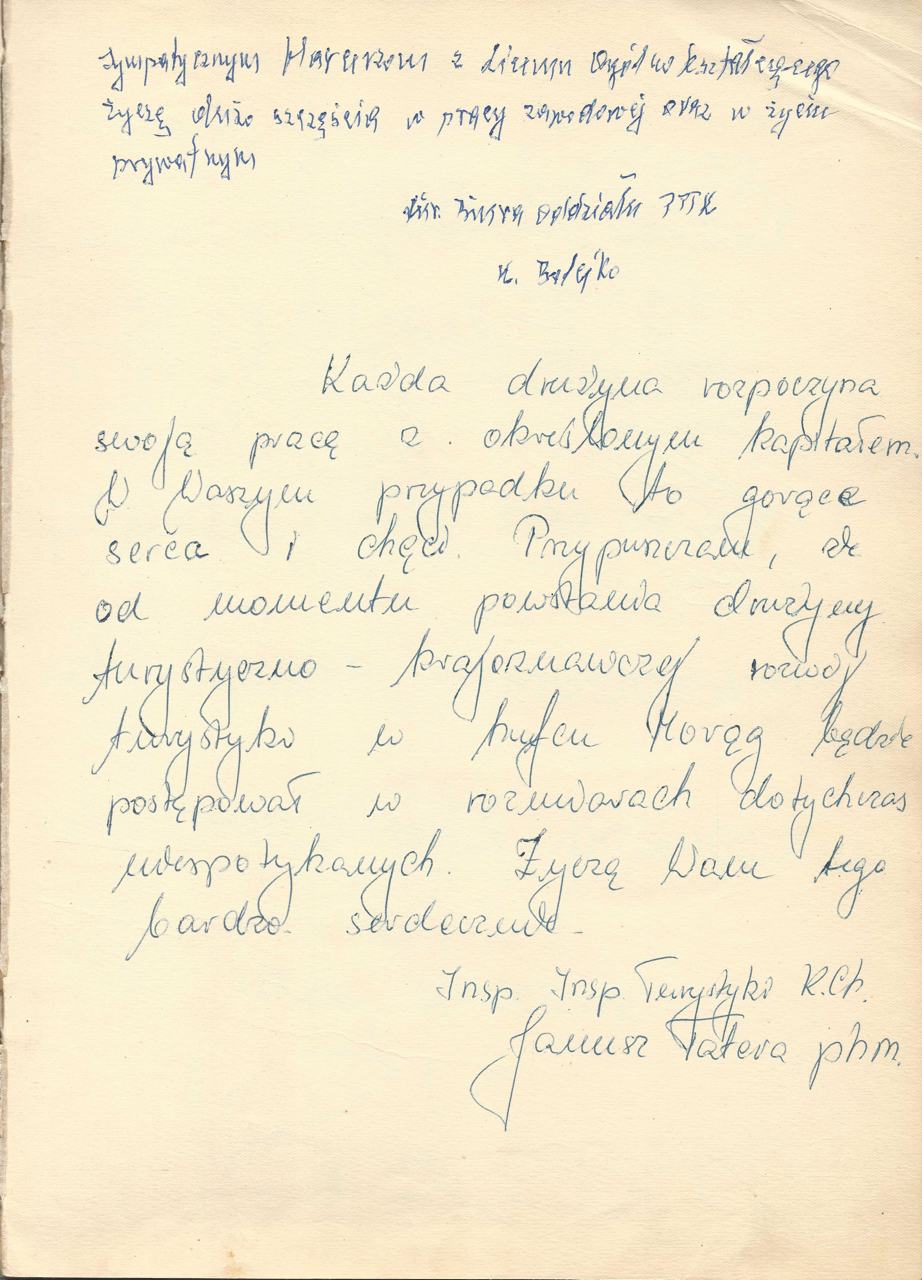 Sympatycznym Harcerzom z Liceum Ogólnokształcącego
życzę dużo szczęścia w pracy zawodowej oraz w życiu
prywatnym
Kier. Biura Oddziału PTTK
K. Balejko
Każda drużyna rozpoczyna
swoją pracę z określonym kapitałem.
W Waszym przypadku to gorące
serca i chęci. Przypuszczam, że
od momentu powstania drużyny
turystyczno - krajoznawczej rozwój
turystyki w hufcu Morąg będzie
postępował w rozmiarach dotychczas
niespotykanych. Życzę Wam tego
bardzo serdecznie.
Insp. Insp. Turystyki K.Ch.
Janusz Tatera phm.